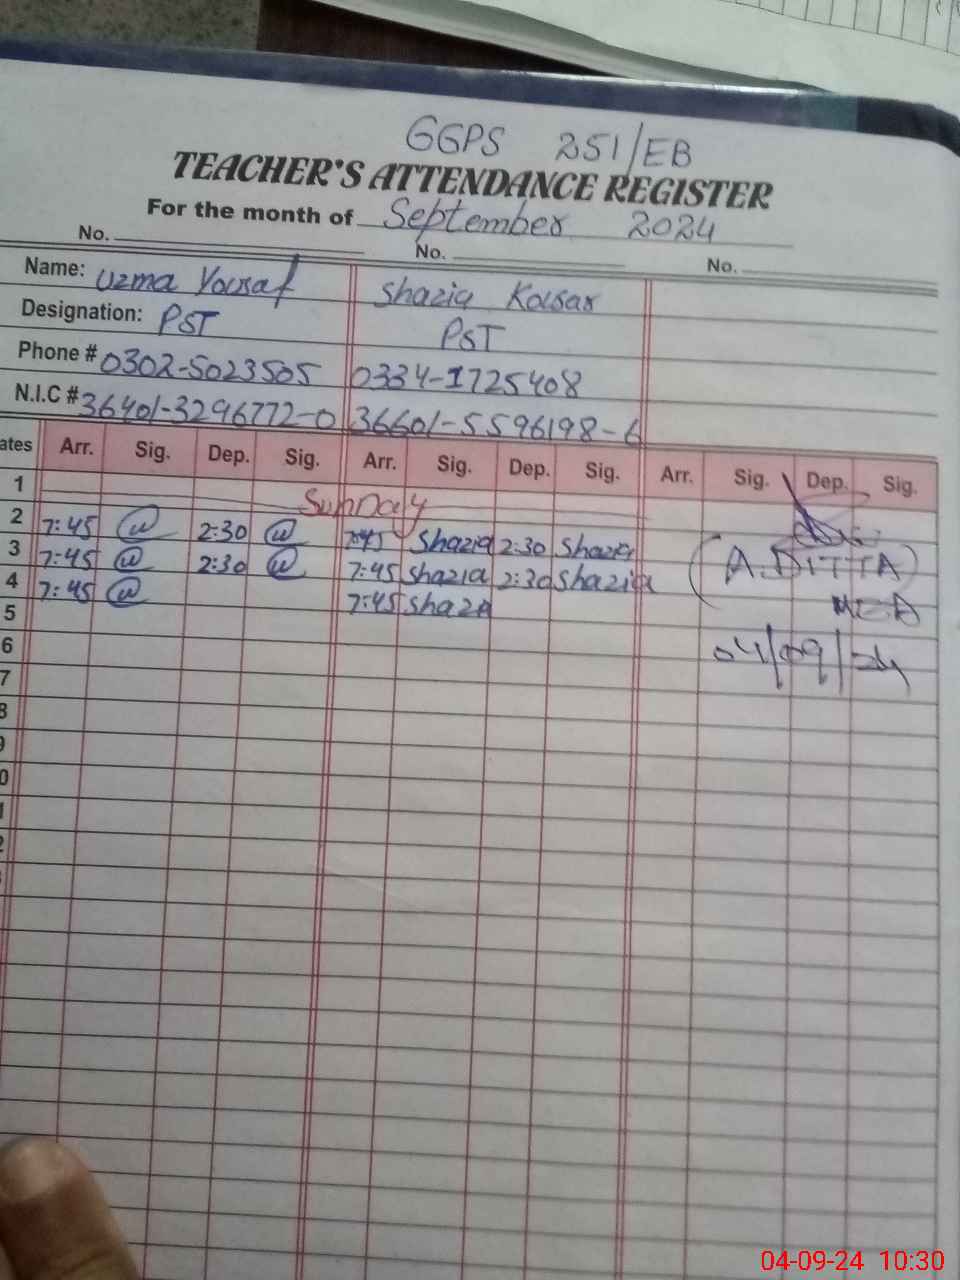 GGPS 251/EB
TEACHER'S ATTENDANCE REGISTER
For the month of September 2024
No. No. No.
Name: Uzma Yousaf Shazia Kousar
Designation: PST PST
Phone # 0302-5023505 0334-1725408
N.I.C # 36401-3296772-0 36601-5596198-6
ates Arr. Sig. Dep. Sig. Arr. Sig. Dep. Sig. Arr. Sig. Dep. Sig.
1 Sunday
2 7:45 2:30 7:45 Shazia 2:30 Shazia
3 7:45 2:30 7:45 Shazia 2:30 Shazia
4 7:45 7:45 Shaza
5
6
7
8
9
0
1
2
3
(A.DITTA)
MEA
04/09/24
04-09-24 10:30